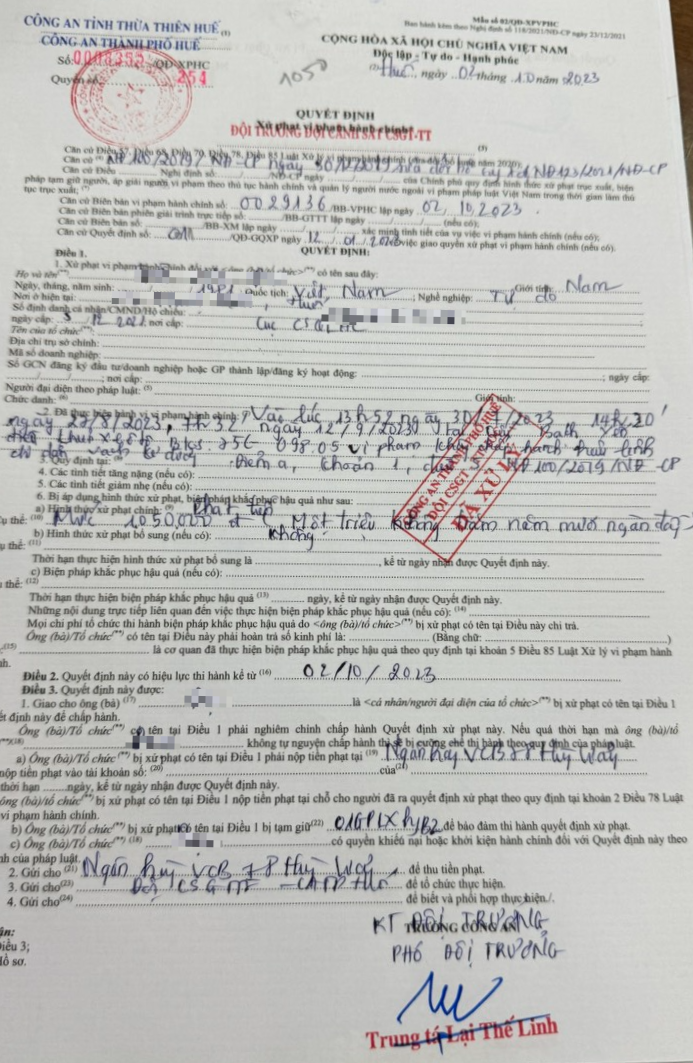 Mẫu số 02/QĐ-XPVPHC
Ban hành kèm theo Nghị định số 118/2021/NĐ-CP ngày 23/12/2021
CÔNG AN TỈNH THỪA THIÊN HUẾ (1)
CÔNG AN THÀNH PHỐ HUẾ
CỘNG HÒA XÃ HỘI CHỦ NGHĨA VIỆT NAM
Độc lập - Tự do - Hạnh phúc
Số: /QĐ-XPHC
Quyển số 254
1050
Huế, ngày 02 tháng 10 năm 2023
QUYẾT ĐỊNH
Xử phạt vi phạm hành chính
ĐỘI TRƯỞNG ĐỘI CẢNH SÁT CSGT-TT
Căn cứ Điều 57, Điều 68, Điều 70, Điều 78, Điều 85 Luật Xử lý vi phạm hành chính
Căn cứ NĐ 100/2019/NĐ-CP ngày 30/12/2019 NĐ 123/2021/NĐ-CP
Căn cứ Điều Nghị định số: /NĐ-CP ngày của Chính phủ quy định hình thức xử phạt trục xuất, biện
pháp tạm giữ người, áp giải người vi phạm theo thủ tục hành chính và quản lý người nước ngoài vi phạm pháp luật Việt Nam trong thời gian làm thủ
tục trục xuất;
Căn cứ Biên bản vi phạm hành chính số: 0029136 /BB-VPHC lập ngày 02/10/2023
Căn cứ Biên bản phiên giải trình trực tiếp số: /BB-GTTT lập ngày (nếu có);
Căn cứ Biên bản số: /BB-XM lập ngày xác minh tình tiết của vụ việc vi phạm hành chính (nếu có);
Căn cứ Quyết định số: /QĐ-GQXP ngày 12 việc giao quyền xử phạt vi phạm hành chính (nếu có);
QUYẾT ĐỊNH:
Điều 1.
1. Xử phạt vi phạm hành chính đối với <ông (bà)/tổ chức>(**) có tên sau đây:
Họ và tên(**) Giới tính: Nam
Ngày, tháng, năm sinh: Quốc tịch: Việt Nam
Nơi ở hiện tại: Huế ; Nghề nghiệp: Tự do
Số định danh cá nhân/CMND/Hộ chiếu:
ngày cấp: nơi cấp: Cục CS
Tên của tổ chức(**):
Địa chỉ trụ sở chính:
Mã số doanh nghiệp:
Số GCN đăng ký đầu tư/doanh nghiệp hoặc GP thành lập/đăng ký hoạt động:
; ngày cấp: ; nơi cấp:
Người đại diện theo pháp luật: (5) Giới tính:
Chức danh: (6)
2. Đã thực hiện hành vi vi phạm hành chính: Vào lúc 13h52 ngày 14h20'
ngày 7h32 ngày 12/9/2023
điều khiển xe ô tô BKS: 75G 098.05 vi phạm không chấp hành hiệu lệnh
chỉ dẫn vạch kẻ đường
3. Quy định tại: Điểm a, khoản 1, NĐ 100/2019/NĐ-CP
4. Các tình tiết tăng nặng (nếu có):
5. Các tình tiết giảm nhẹ (nếu có):
6. Bị áp dụng hình thức xử phạt, biện pháp khắc phục hậu quả như sau:
a) Hình thức xử phạt chính: (9) Phạt tiền
Cụ thể: (10) Mức 1050.000 đ ( Một triệu không trăm năm mươi ngàn đồng)
b) Hình thức xử phạt bổ sung (nếu có): Không
Cụ thể: (11)
CÔNG AN THÀNH PHỐ HUẾ
ĐỘI CSGT
ĐÃ XỬ LÝ
Thời hạn thực hiện hình thức xử phạt bổ sung là , kể từ ngày nhận được Quyết định này.
c) Biện pháp khắc phục hậu quả (nếu có):
thể: (12)
Thời hạn thực hiện biện pháp khắc phục hậu quả (13) ngày, kể từ ngày nhận được Quyết định này.
Những nội dung trực tiếp liên quan đến việc thực hiện biện pháp khắc phục hậu quả (nếu có): (14)
Mọi chi phí tổ chức thi hành biện pháp khắc phục hậu quả do <ông (bà)/tổ chức>(**) bị xử phạt có tên tại Điều này chi trả.
Ông (bà)/Tổ chức(**) có tên tại Điều này phải hoàn trả số kinh phí là: (Bằng chữ: )
(15) là cơ quan đã thực hiện biện pháp khắc phục hậu quả theo quy định tại khoản 5 Điều 85 Luật Xử lý vi phạm hành
nh.
Điều 2. Quyết định này có hiệu lực thi hành kể từ (16) 02/10/2023
Điều 3. Quyết định này được:
1. Giao cho ông (bà) (17) là <cá nhân/người đại diện của tổ chức>(**) bị xử phạt có tên tại Điều 1
ết định này để chấp hành.
Ông (bà)/Tổ chức(**) có tên tại Điều 1 phải nghiêm chỉnh chấp hành Quyết định xử phạt này. Nếu quá thời hạn mà ông (bà)/tổ
(**)(18) không tự nguyện chấp hành thì sẽ bị cưỡng chế thi hành theo quy định của pháp luật.
a) Ông (bà)/Tổ chức(**) bị xử phạt có tên tại Điều 1 phải nộp tiền phạt tại (19) Ngân hàng VCB 78 Hùng Vương
nộp tiền phạt vào tài khoản số: (20) của(21)
thời hạn ngày, kể từ ngày nhận được Quyết định này.
ông (bà)/Tổ chức(**) bị xử phạt có tên tại Điều 1 nộp tiền phạt tại chỗ cho người đã ra quyết định xử phạt theo quy định tại khoản 2 Điều 78 Luật
vi phạm hành chính.
b) Ông (bà)/Tổ chức(**) bị xử phạt có tên tại Điều 1 bị tạm giữ(22) 01 GPLX hạng B2 để bảo đảm thi hành quyết định xử phạt.
c) Ông (bà)/Tổ chức(**) (18) có quyền khiếu nại hoặc khởi kiện hành chính đối với Quyết định này theo
nh của pháp luật.
2. Gửi cho (21) Ngân hàng VCB 78 Hùng Vương để thu tiền phạt.
3. Gửi cho(23) Đội CSGT-TT - CATP Huế để tổ chức thực hiện.
4. Gửi cho(24) để biết và phối hợp thực hiện./.
KT ĐỘI TRƯỞNG
TRƯỞNG CÔNG AN
PHÓ ĐỘI TRƯỞNG
ận:
Điều 3;
Hồ sơ.
Trung tá Lại Thế Linh